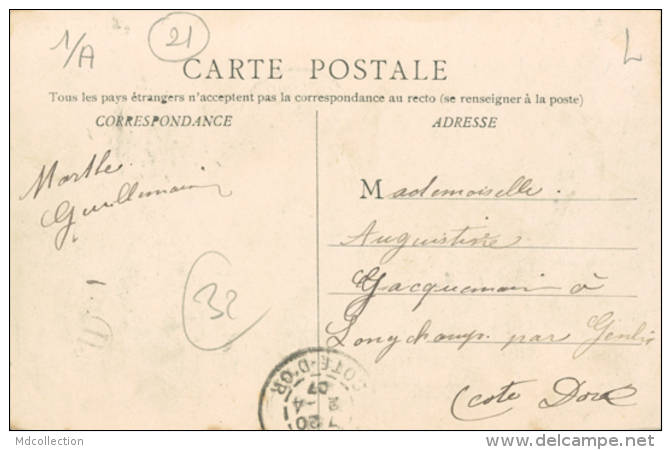 1/A
21
L
CARTE POSTALE
Tous les pays étrangers n'acceptent pas la correspondance au recto (se renseigner à la poste)
CORRESPONDANCE
ADRESSE
Marthe
Guillemain
32
Mademoiselle
Augustine
Gacquemain à
Longchamp par Genlis
(Cote Dore
COTE-D'OR
07
Mdcollection
delcampe.net